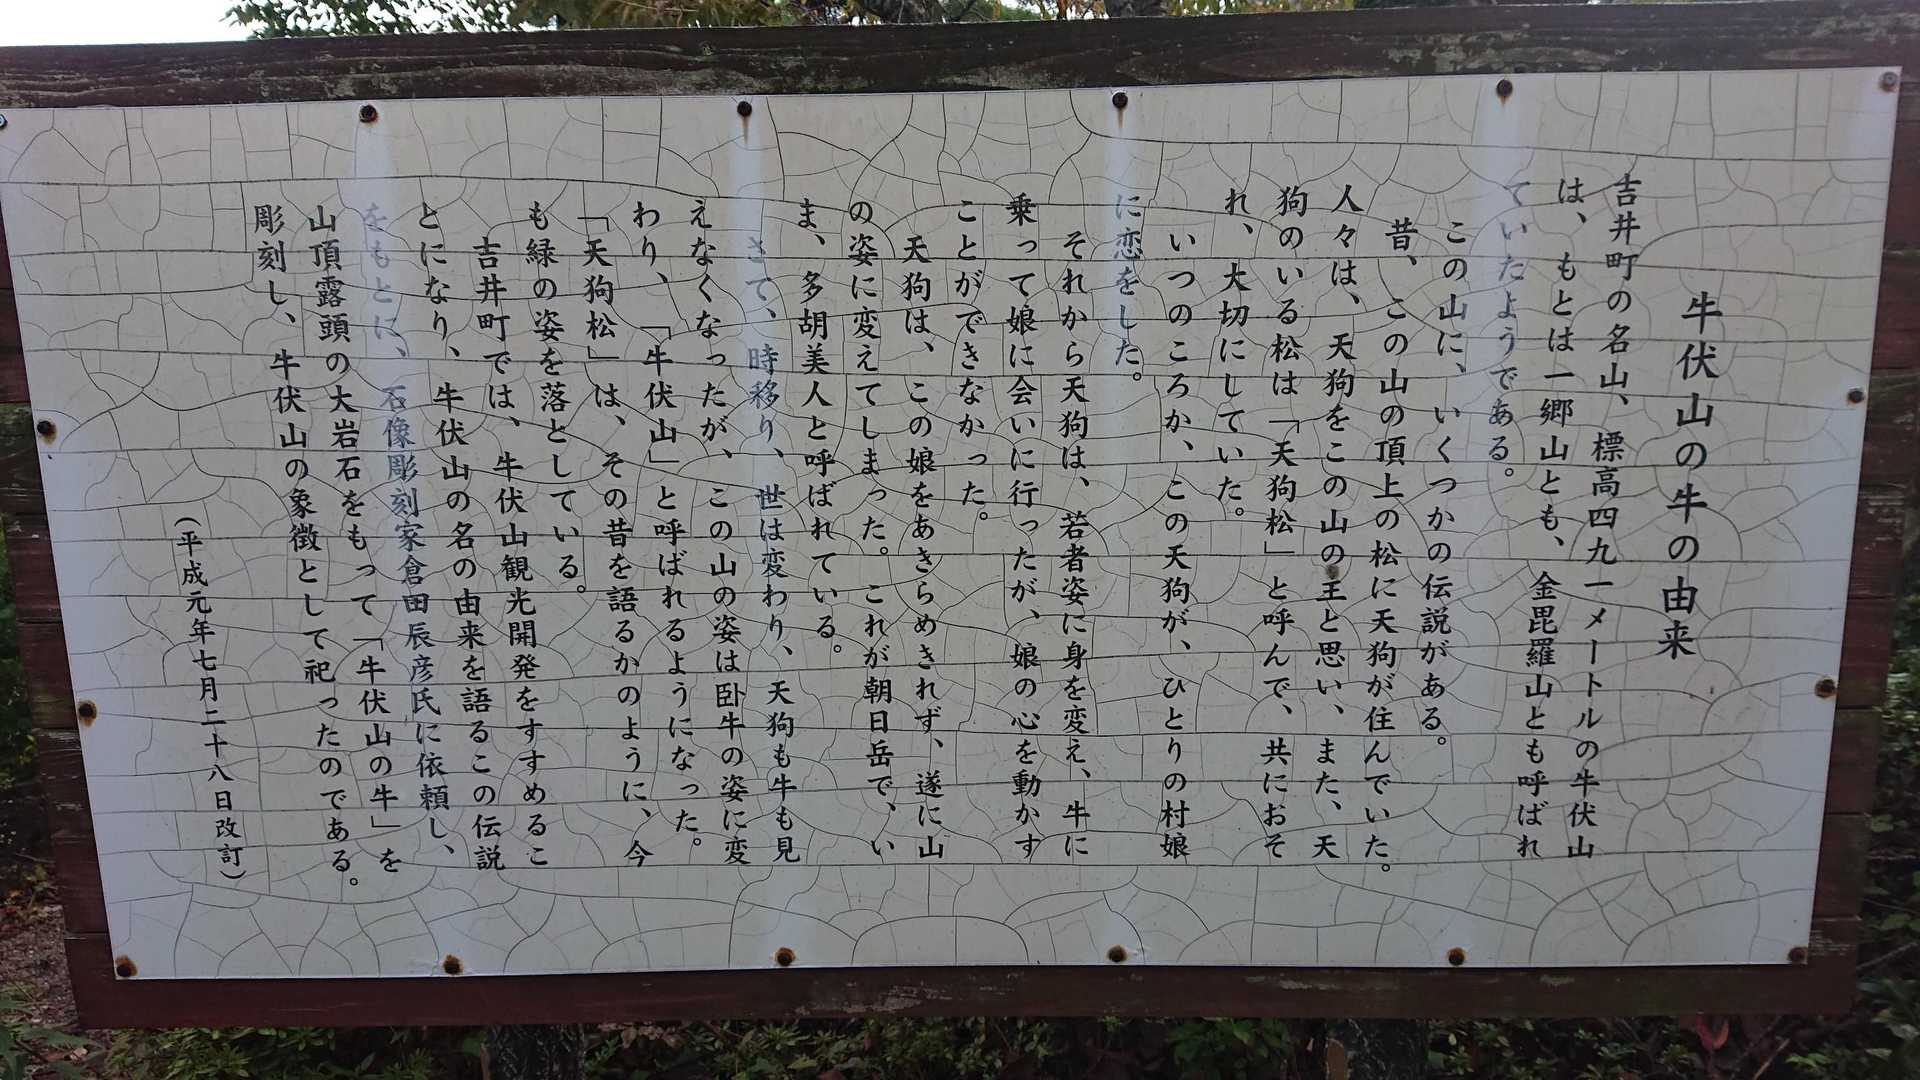 牛伏山の牛の由来
吉井町の名山、標高四九一メートルの牛伏山
は、もとは一郷山とも、金毘羅山とも呼ばれ
ていたようである。
この山に、いくつかの伝説がある。
昔、この山の頂上の松に天狗が住んでいた。
人々は、天狗をこの山の主と思い、また、天
狗のいる松は「天狗松」と呼んで、共におそ
れ、大切にしていた。
いつのころか、この天狗が、ひとりの村娘
に恋をした。
それから天狗は、若者姿に身を変え、牛に
乗って娘に会いに行ったが、娘の心を動かす
ことができなかった。
天狗は、この娘をあきらめきれず、遂に山
の姿に変えてしまった。これが朝日岳で、い
ま、多胡美人と呼ばれている。
さて、時移り、世は変わり、天狗も牛も見
えなくなったが、この山の姿は臥牛の姿に変
わり、「牛伏山」と呼ばれるようになった。
「天狗松」は、その昔を語るかのように、今
も緑の姿を落としている。
吉井町では、牛伏山観光開発をすすめるこ
とになり、牛伏山の名の由来を語るこの伝説
をもとに、石像彫刻家倉田辰彦氏に依頼し、
山頂露頭の大岩石をもって「牛伏山の牛」を
彫刻し、牛伏山の象徴として祀ったのである。
(平成元年七月二十八日改訂)